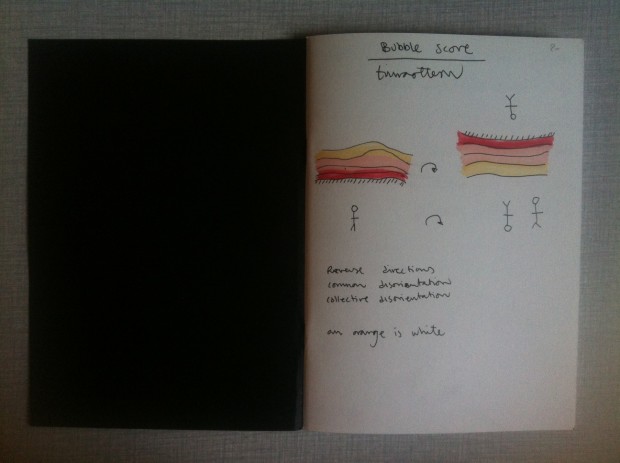 Bubble score
Reverse directions
common disorientation
collective disorientation
an orange is white